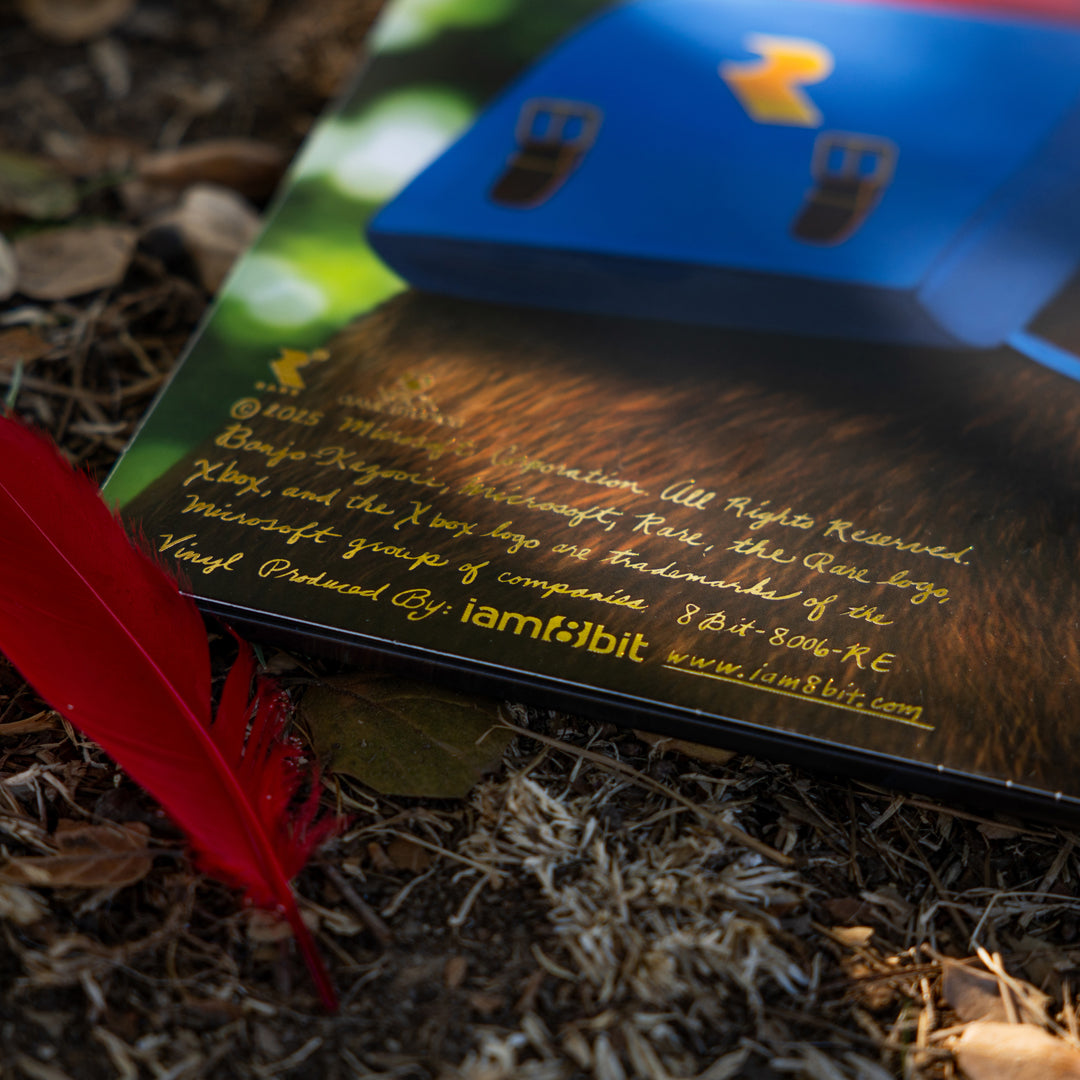 RARE
© 2025 Microsoft Corporation All Rights Reserved.
Banjo-Kazooie, Microsoft, Rare, the Rare logo,
Xbox, and the Xbox logo are trademarks of the
Microsoft group of companies 8Bit-8006-RE
Vinyl Produced By: iam8bit www.iam8bit.com